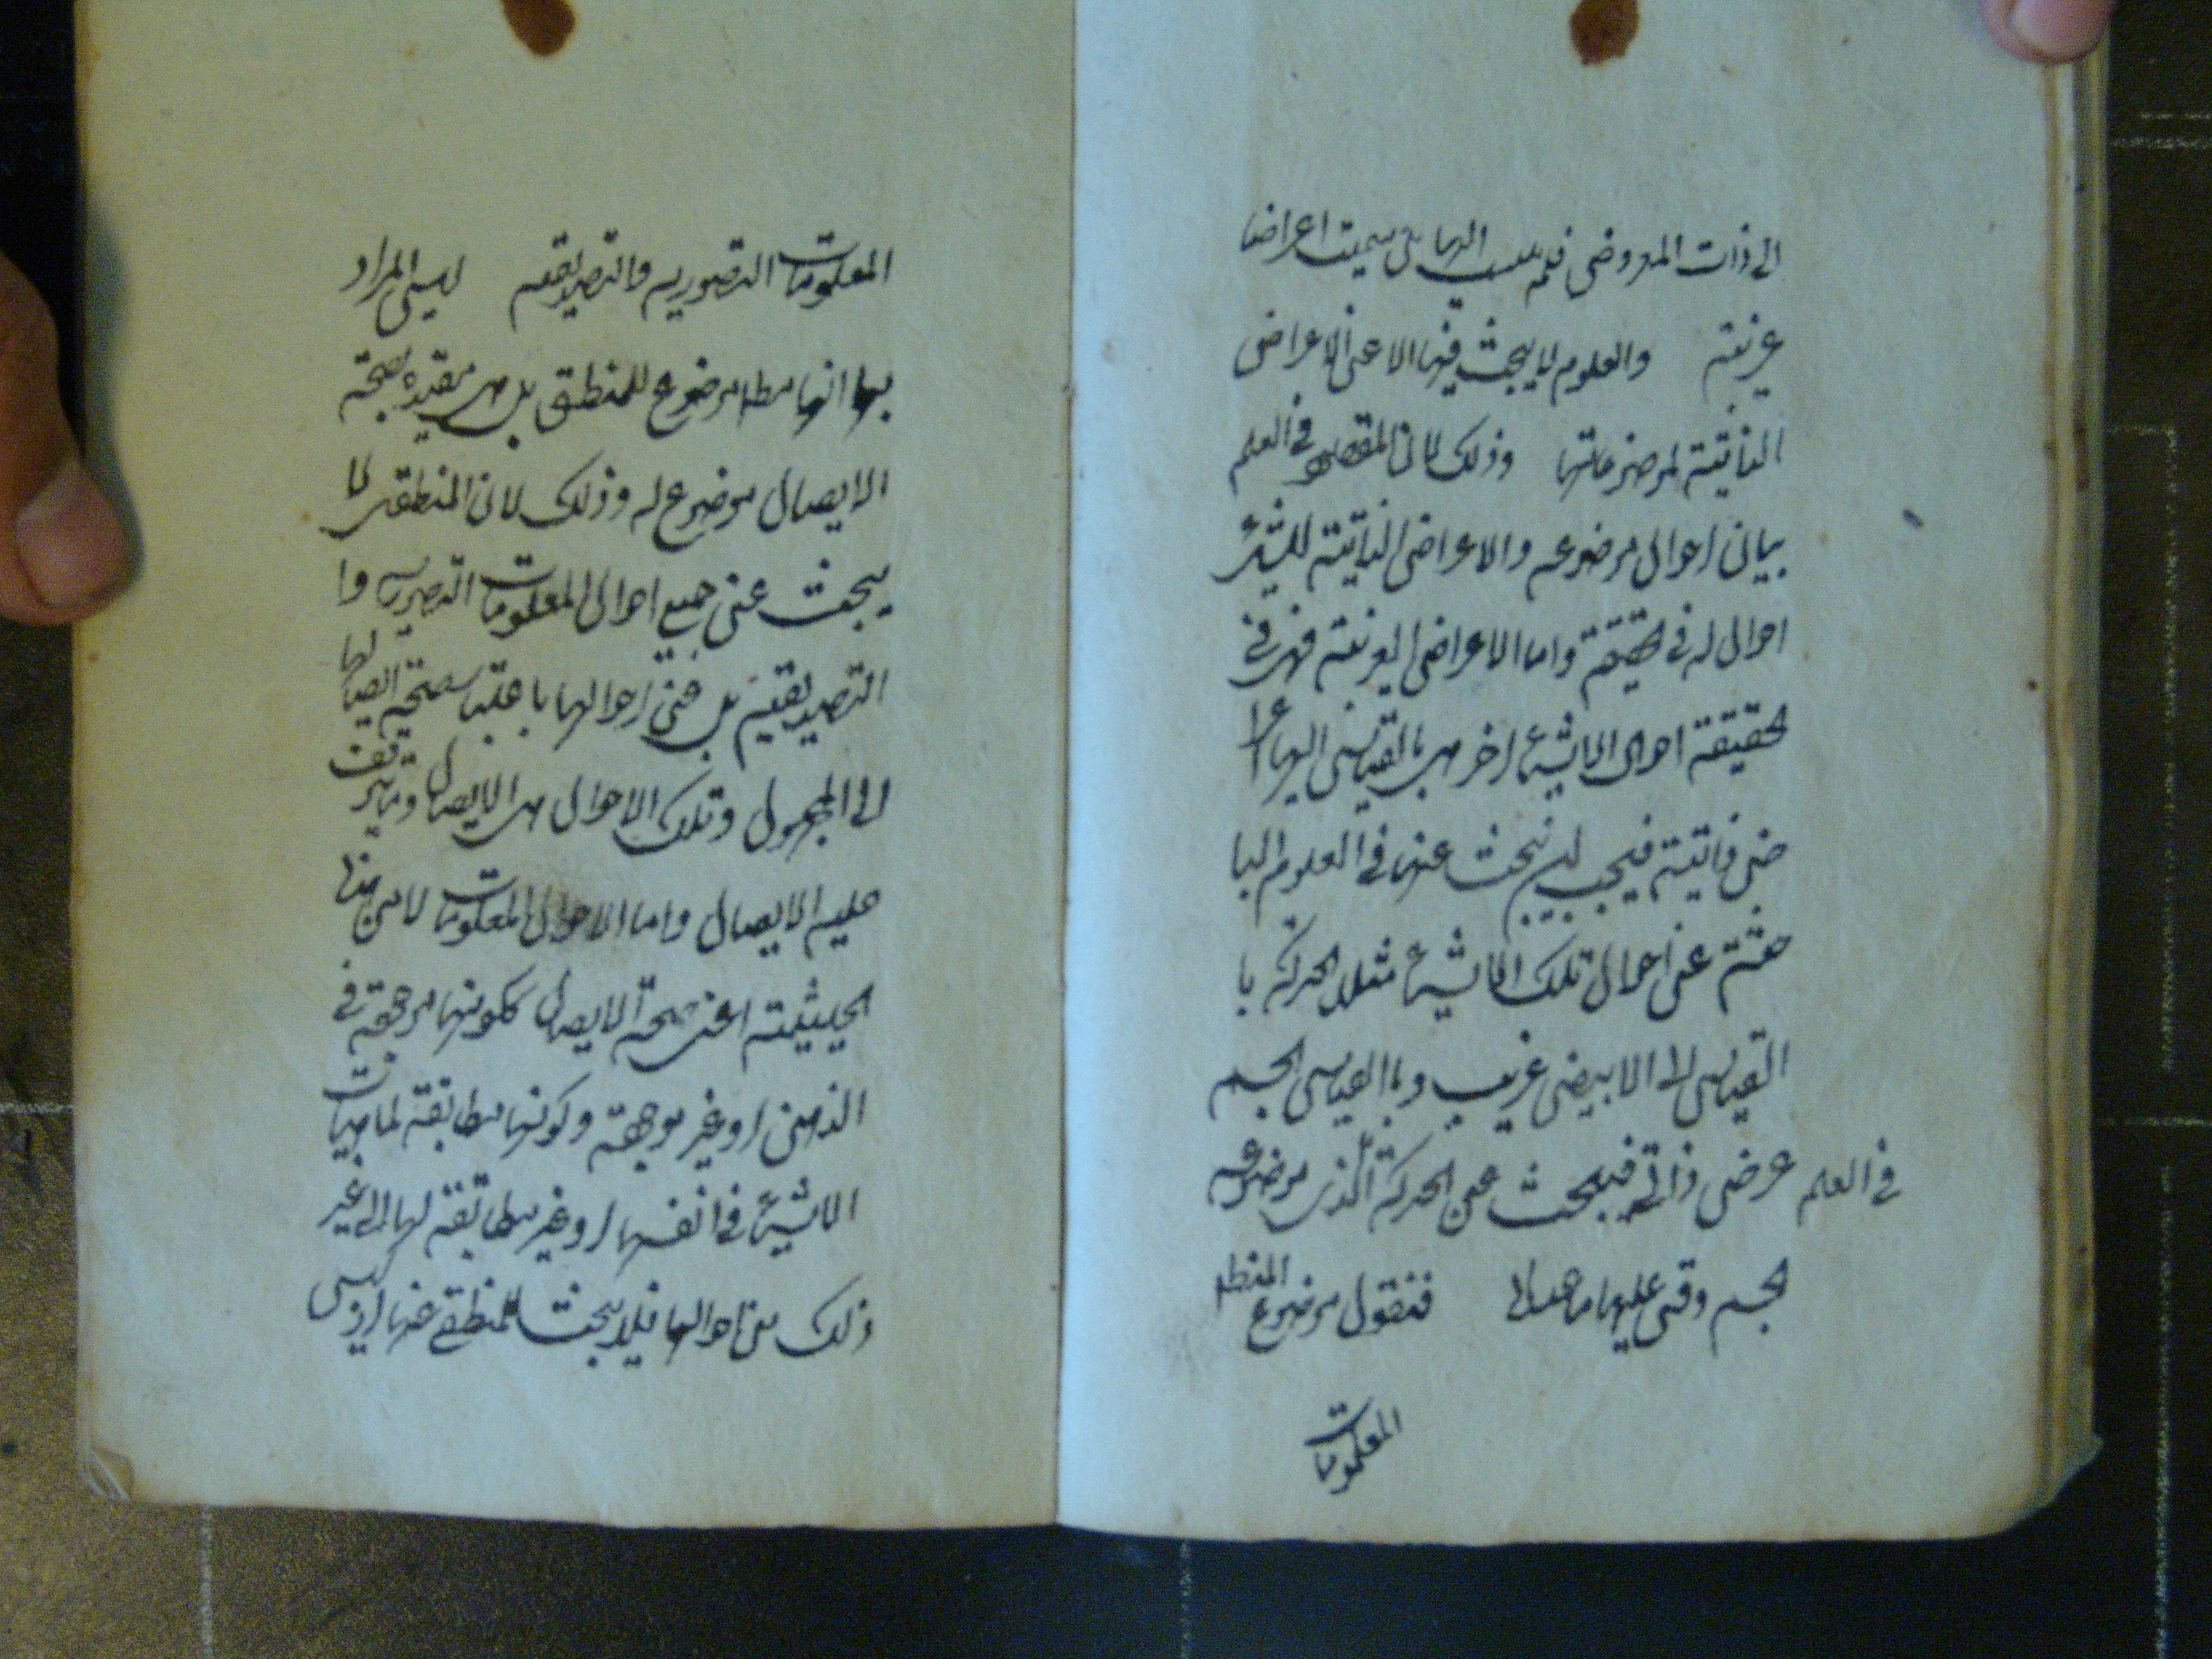 الى ذات المعروض فلم ينسب اليها بل سميت اعراضا
غريبة والعلوم لا يبحث فيها الا عن الاعراض
الذاتية لموضوعاتها وذلك لان المقصود في العلم
بيان احوال موضوعه والاعراض الذاتية للشئ
احوال له في الحقيقة واما الاعراض الغريبة فهى في
الحقيقة احوال لاشياء اخر هى بالقياس اليها اعرا
ض ذاتية فيجب ان يبحث عنها في العلوم البا
حثة عن احوال تلك الاشياء مثلا الحركة با
القياس الى الابيض غريب وبالقياس الجسم
عرض ذاتي فيبحث عن الحركة في العلم الذى موضوعه
الجسم وقس عليها ما عداها فنقول موضوع المنطق
المعلومات
المعلومات التصورية والتصديقية ليس المراد
بها انها مطلقا موضوع للمنطق بل هى مقيدة بصحة
الايصال موضوع له وذلك لان المنطقى لا
يبحث عن جميع احوال المعلومات التصورية وا
التصديقية بل عن احوالها باعتبار صحة ايصالها
الى المجهول وتلك الاحوال هى الايصال وما يتوقف
عليه الايصال واما الاحوال المعلومات لا من هذا
الحيثية اعنى صحة الايصال ككونها موجودة في
الذهن او غير موجودة وكونها مطابقة لماهيات
الاشياء في انفسها او غير مطابقة لها الى غير
ذلك من احوالها فلا يبحث المنطقي عنها اذ ليس